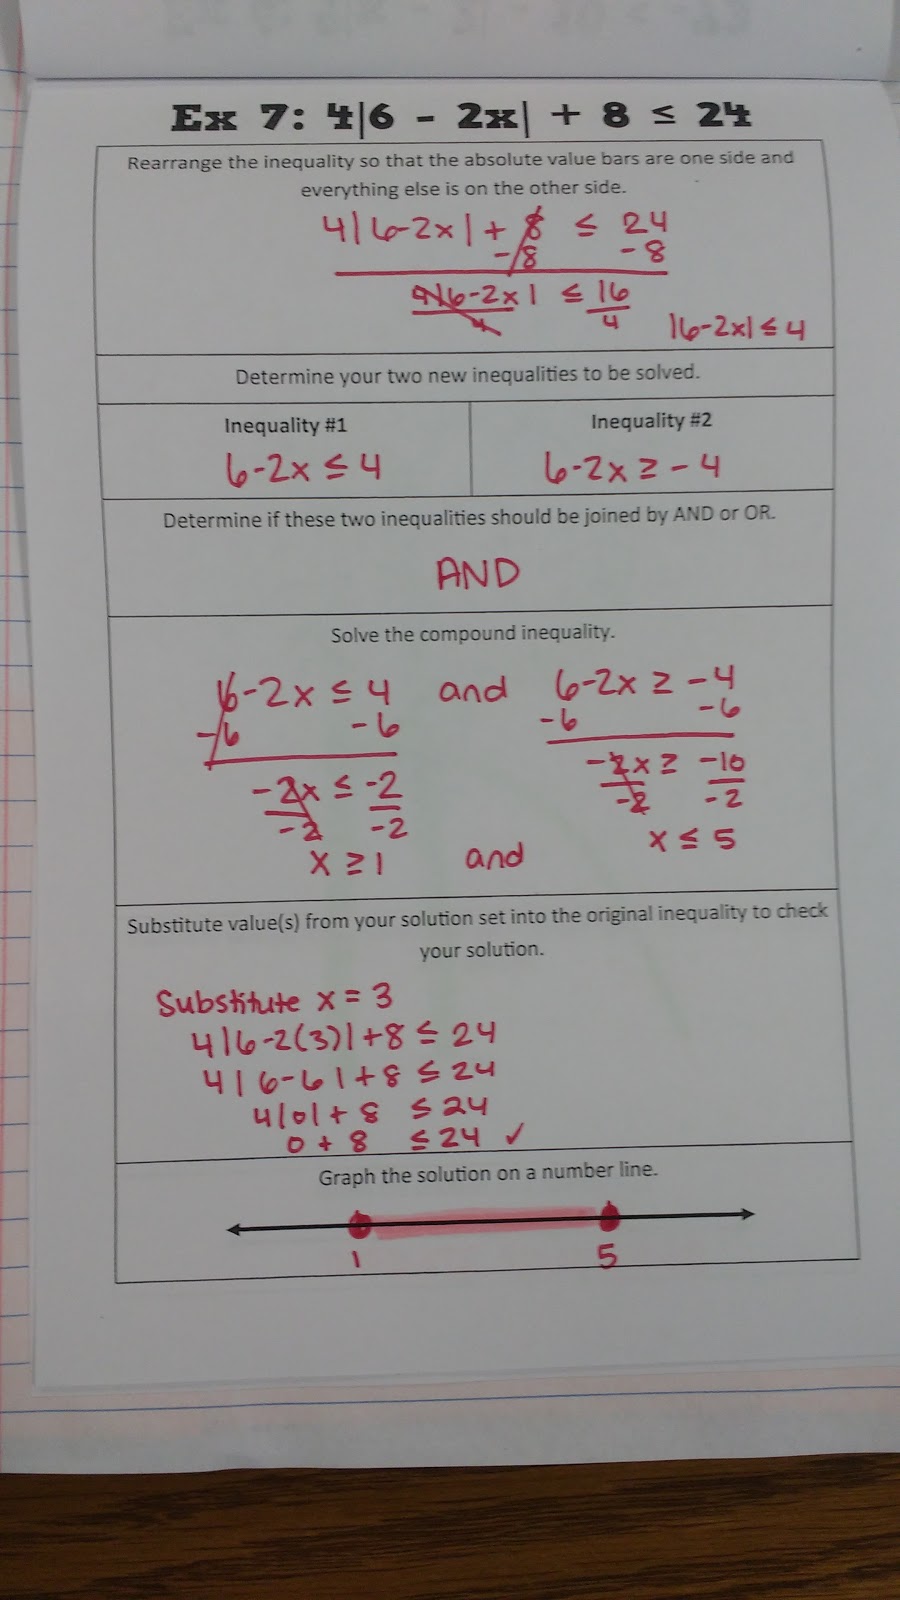 Ex 7: 4|6 - 2x| + 8 ≤ 24
Rearrange the inequality so that the absolute value bars are one side and
everything else is on the other side.
4|6-2x| + 8 ≤ 24
-8 -8
4|6-2x| ≤ 16
4 4 |6-2x| ≤ 4
Determine your two new inequalities to be solved.
Inequality #1 Inequality #2
6-2x ≤ 4 6-2x ≥ -4
Determine if these two inequalities should be joined by AND or OR.
AND
Solve the compound inequality.
6-2x ≤ 4 and 6-2x ≥ -4
-6 -6 -6 -6
-2x ≤ -2 -2x ≥ -10
-2 -2 -2 -2
x ≥ 1 and x ≤ 5
Substitute value(s) from your solution set into the original inequality to check
your solution.
Substitute x = 3
4|6-2(3)|+8 ≤ 24
4|6-6|+8 ≤ 24
4|0|+ 8 ≤ 24
0 + 8 ≤ 24 ✓
Graph the solution on a number line.
1 5